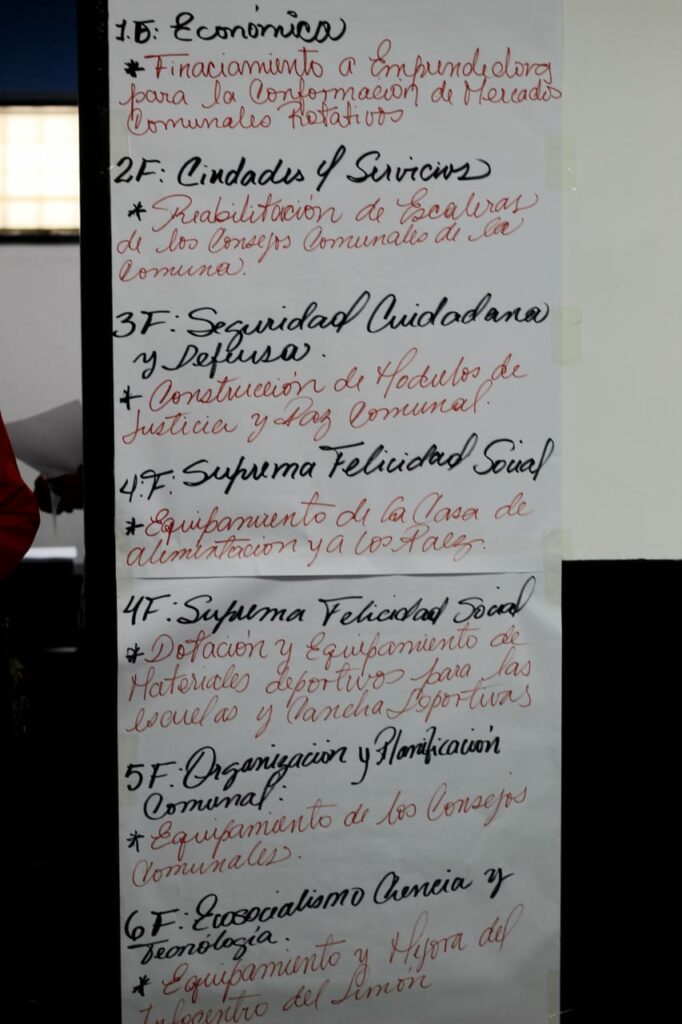 1F: Económica
* Finaciamiento a Emprendedores
para la Conformación de Mercados
Comunales Rotativos
2F: Ciudades y Servicios
* Reabilitación de Escaleras
de los Consejos Comunales de la
Comuna.
3F: Seguridad Cuidadana
y Defensa.
* Construcción de Modulos de
Justicia y Paz Comunal.
4F: Suprema Felicidad Social
* Equipamiento de la Casa de
alimentacion y a los Paez.
4F: Suprema Felicidad Social
* Dotación y Equipamiento de
Materiales deportivos para las
escuelas y Cancha Deportivas
5F: Organización y Planificación
Comunal:
* Equipamiento de los Consejos
Comunales.
6F: Ecosocialismo Ciencia y
Tecnólogía.
* Equipamiento y Mejora del
Infocentro del Limón